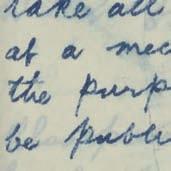 take all
at a mee
the purp
be publi